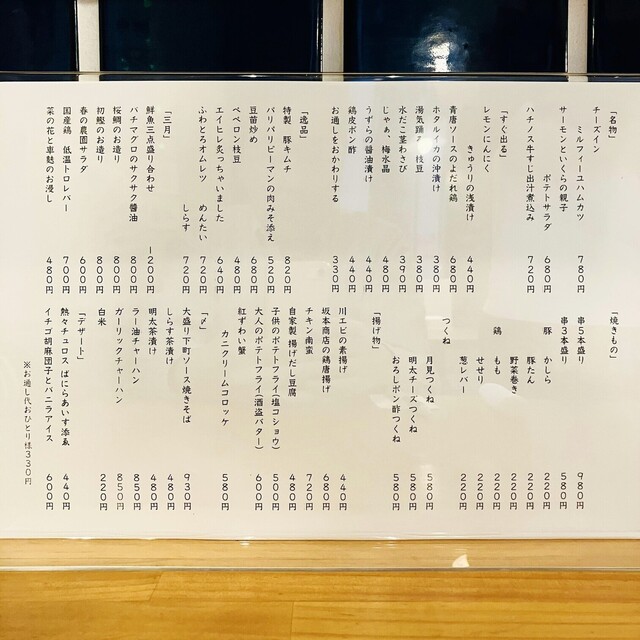 「名物」
チーズイン
ミルフィーユハムカツ 780円
サーモンといくらの親子
ポテトサラダ 680円
ハチノス牛すじ出汁煮込み 720円
「すぐ出る」
レモンにんにく
きゅうりの浅漬け 440円
青唐ソースのよだれ鶏 680円
ホタルイカの沖漬け 380円
湯気踊る 枝豆 380円
水だこ茎わさび 390円
じゃぁ、梅水晶 480円
うずらの醤油漬け 440円
鶏皮ポン酢 440円
お通しをおかわりする 330円
「逸品」
特製 豚キムチ 820円
バリバリピーマンの肉みそ添え 520円
豆苗炒め 680円
ペペロン枝豆 480円
エイヒレ炙っちゃいました 640円
ふわとろオムレツ めんたい 720円
しらす 720円
「三月」
鮮魚三点盛り合わせ 1200円
バチマグロのサクサク醤油 800円
桜鯛のお造り 800円
初鰹のお造り 800円
春の農園サラダ 600円
国産鶏 低温トロレバー 700円
菜の花と車麩のお浸し 480円
「焼きもの」
串5本盛り 980円
串3本盛り 580円
豚 かしら 220円
豚たん 220円
野菜巻き 220円
鶏 もも 220円
せせり 220円
葱レバー 220円
つくね
月見つくね 580円
明太チーズつくね 580円
おろしポン酢つくね 580円
「揚げ物」
川エビの素揚げ 440円
坂本商店の鶏唐揚げ 680円
チキン南蛮 720円
自家製 揚げだし豆腐 480円
子供のポテトフライ(塩コショウ) 500円
大人のポテトフライ(酒盗バター) 600円
紅ずわい蟹
カニクリームコロッケ 580円
「〆」
大盛り下町ソース焼きそば 930円
しらす茶漬け 480円
明太茶漬け 480円
ラー油チャーハン 850円
ガーリックチャーハン 850円
白米 220円
「デザート」
熱々チュロス ばにらあいす添ゑ 440円
イチゴ胡麻団子とバニラアイス 600円
※お通し代おひとり様330円